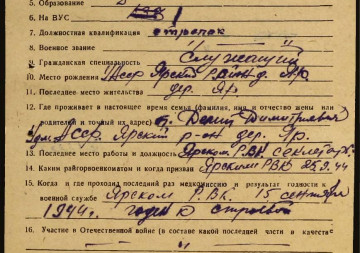 5. Образование
6. На ВУС
7. Должностная квалификация стрелок
8. Военное звание
9. Гражданская специальность Служащий
10. Место рождения Ярский
11. Последнее место жительства дер. Яр.
12. Где проживает в настоящее время семья (фамилия, имя и отчество жены или
родителей и точный их адрес) Дмитриевич
Ярский р-он дер. Яр.
13. Последнее место работы и должность Ярском РВК
14. Каким райгорвоенкоматом и когда призван Ярском РВК 25.9.44
15. Когда и где проходил последний раз медкомиссию и результат годности к
военной службе Ярском РВК. 15 сентября
1944г. годен к строевой
16. Участие в Отечественной войне (в составе какой последней части и качестве